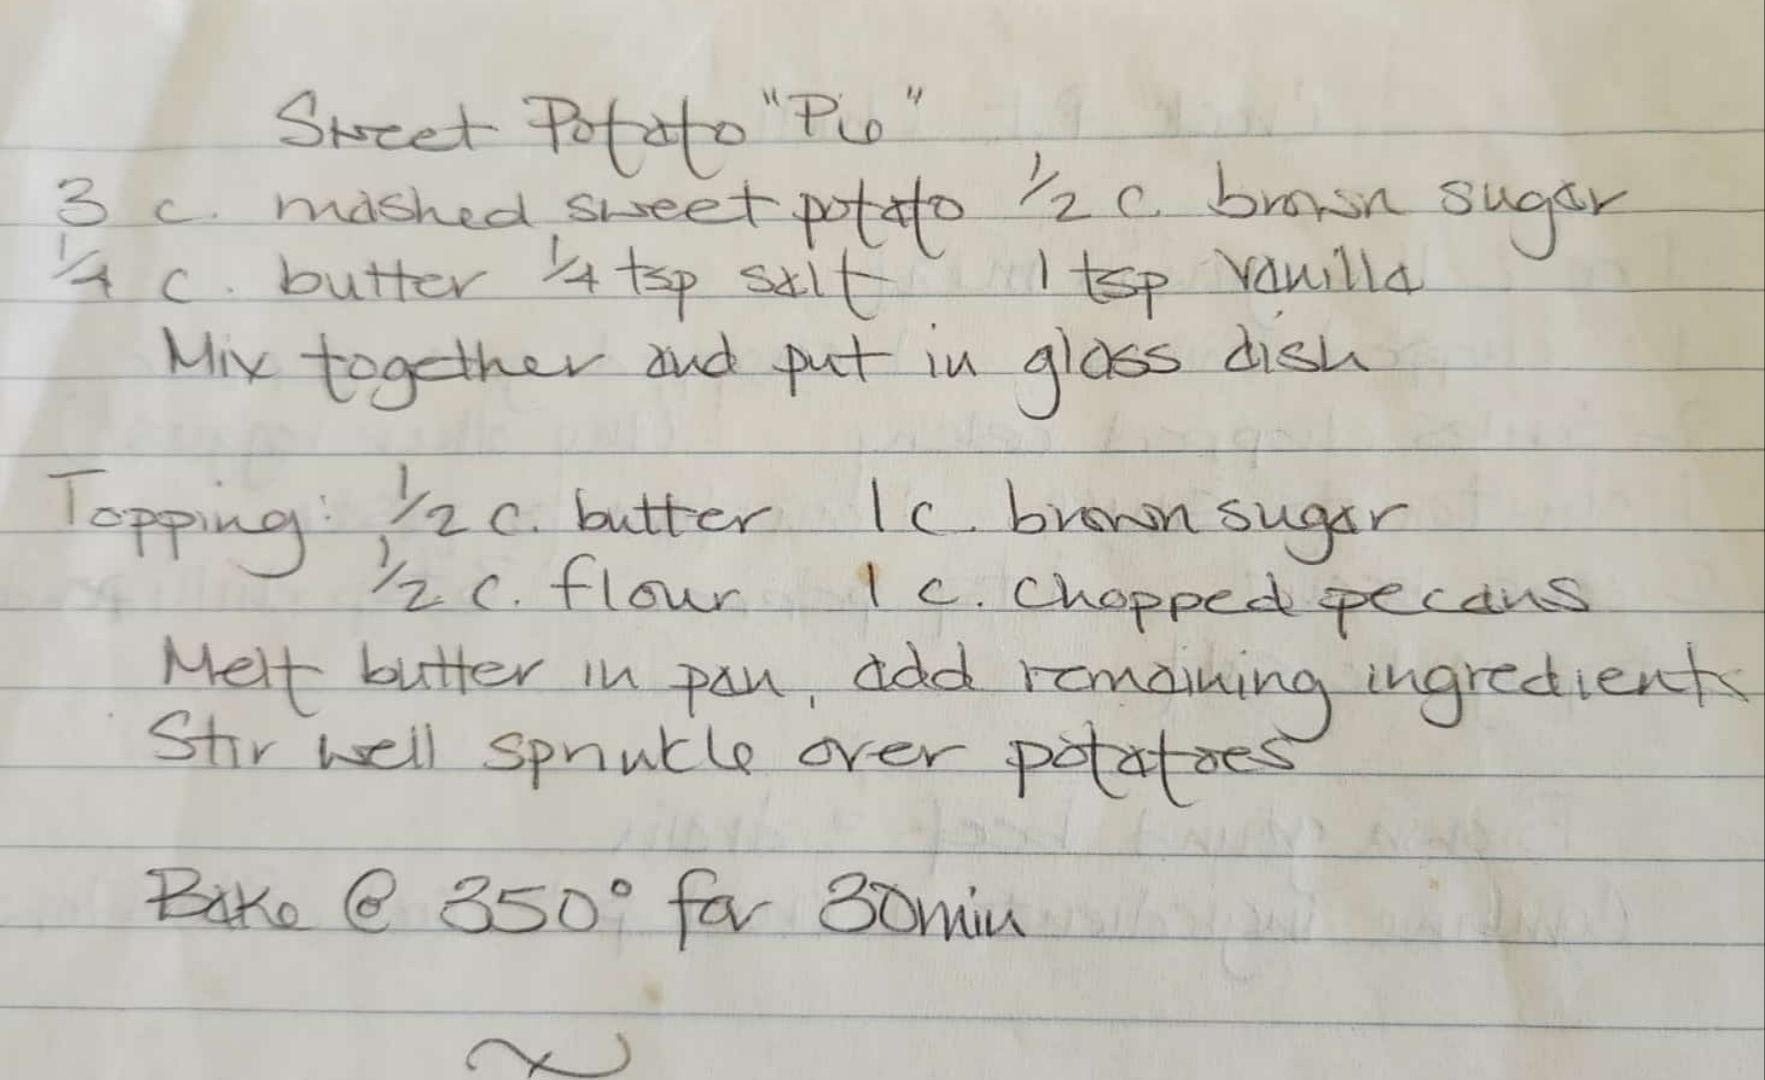 Sweet Potato "Pie"
3 c. mashed sweet potato 1/2 c. brown sugar
1/4 c. butter 1/4 tsp salt 1 tsp vanilla
Mix together and put in glass dish
Topping: 1/2 c. butter 1 c. brown sugar
1/2 c. flour 1 c. chopped pecans
Melt butter in pan, add remaining ingredients
Stir well sprinkle over potatoes
Bake @ 350° for 30min